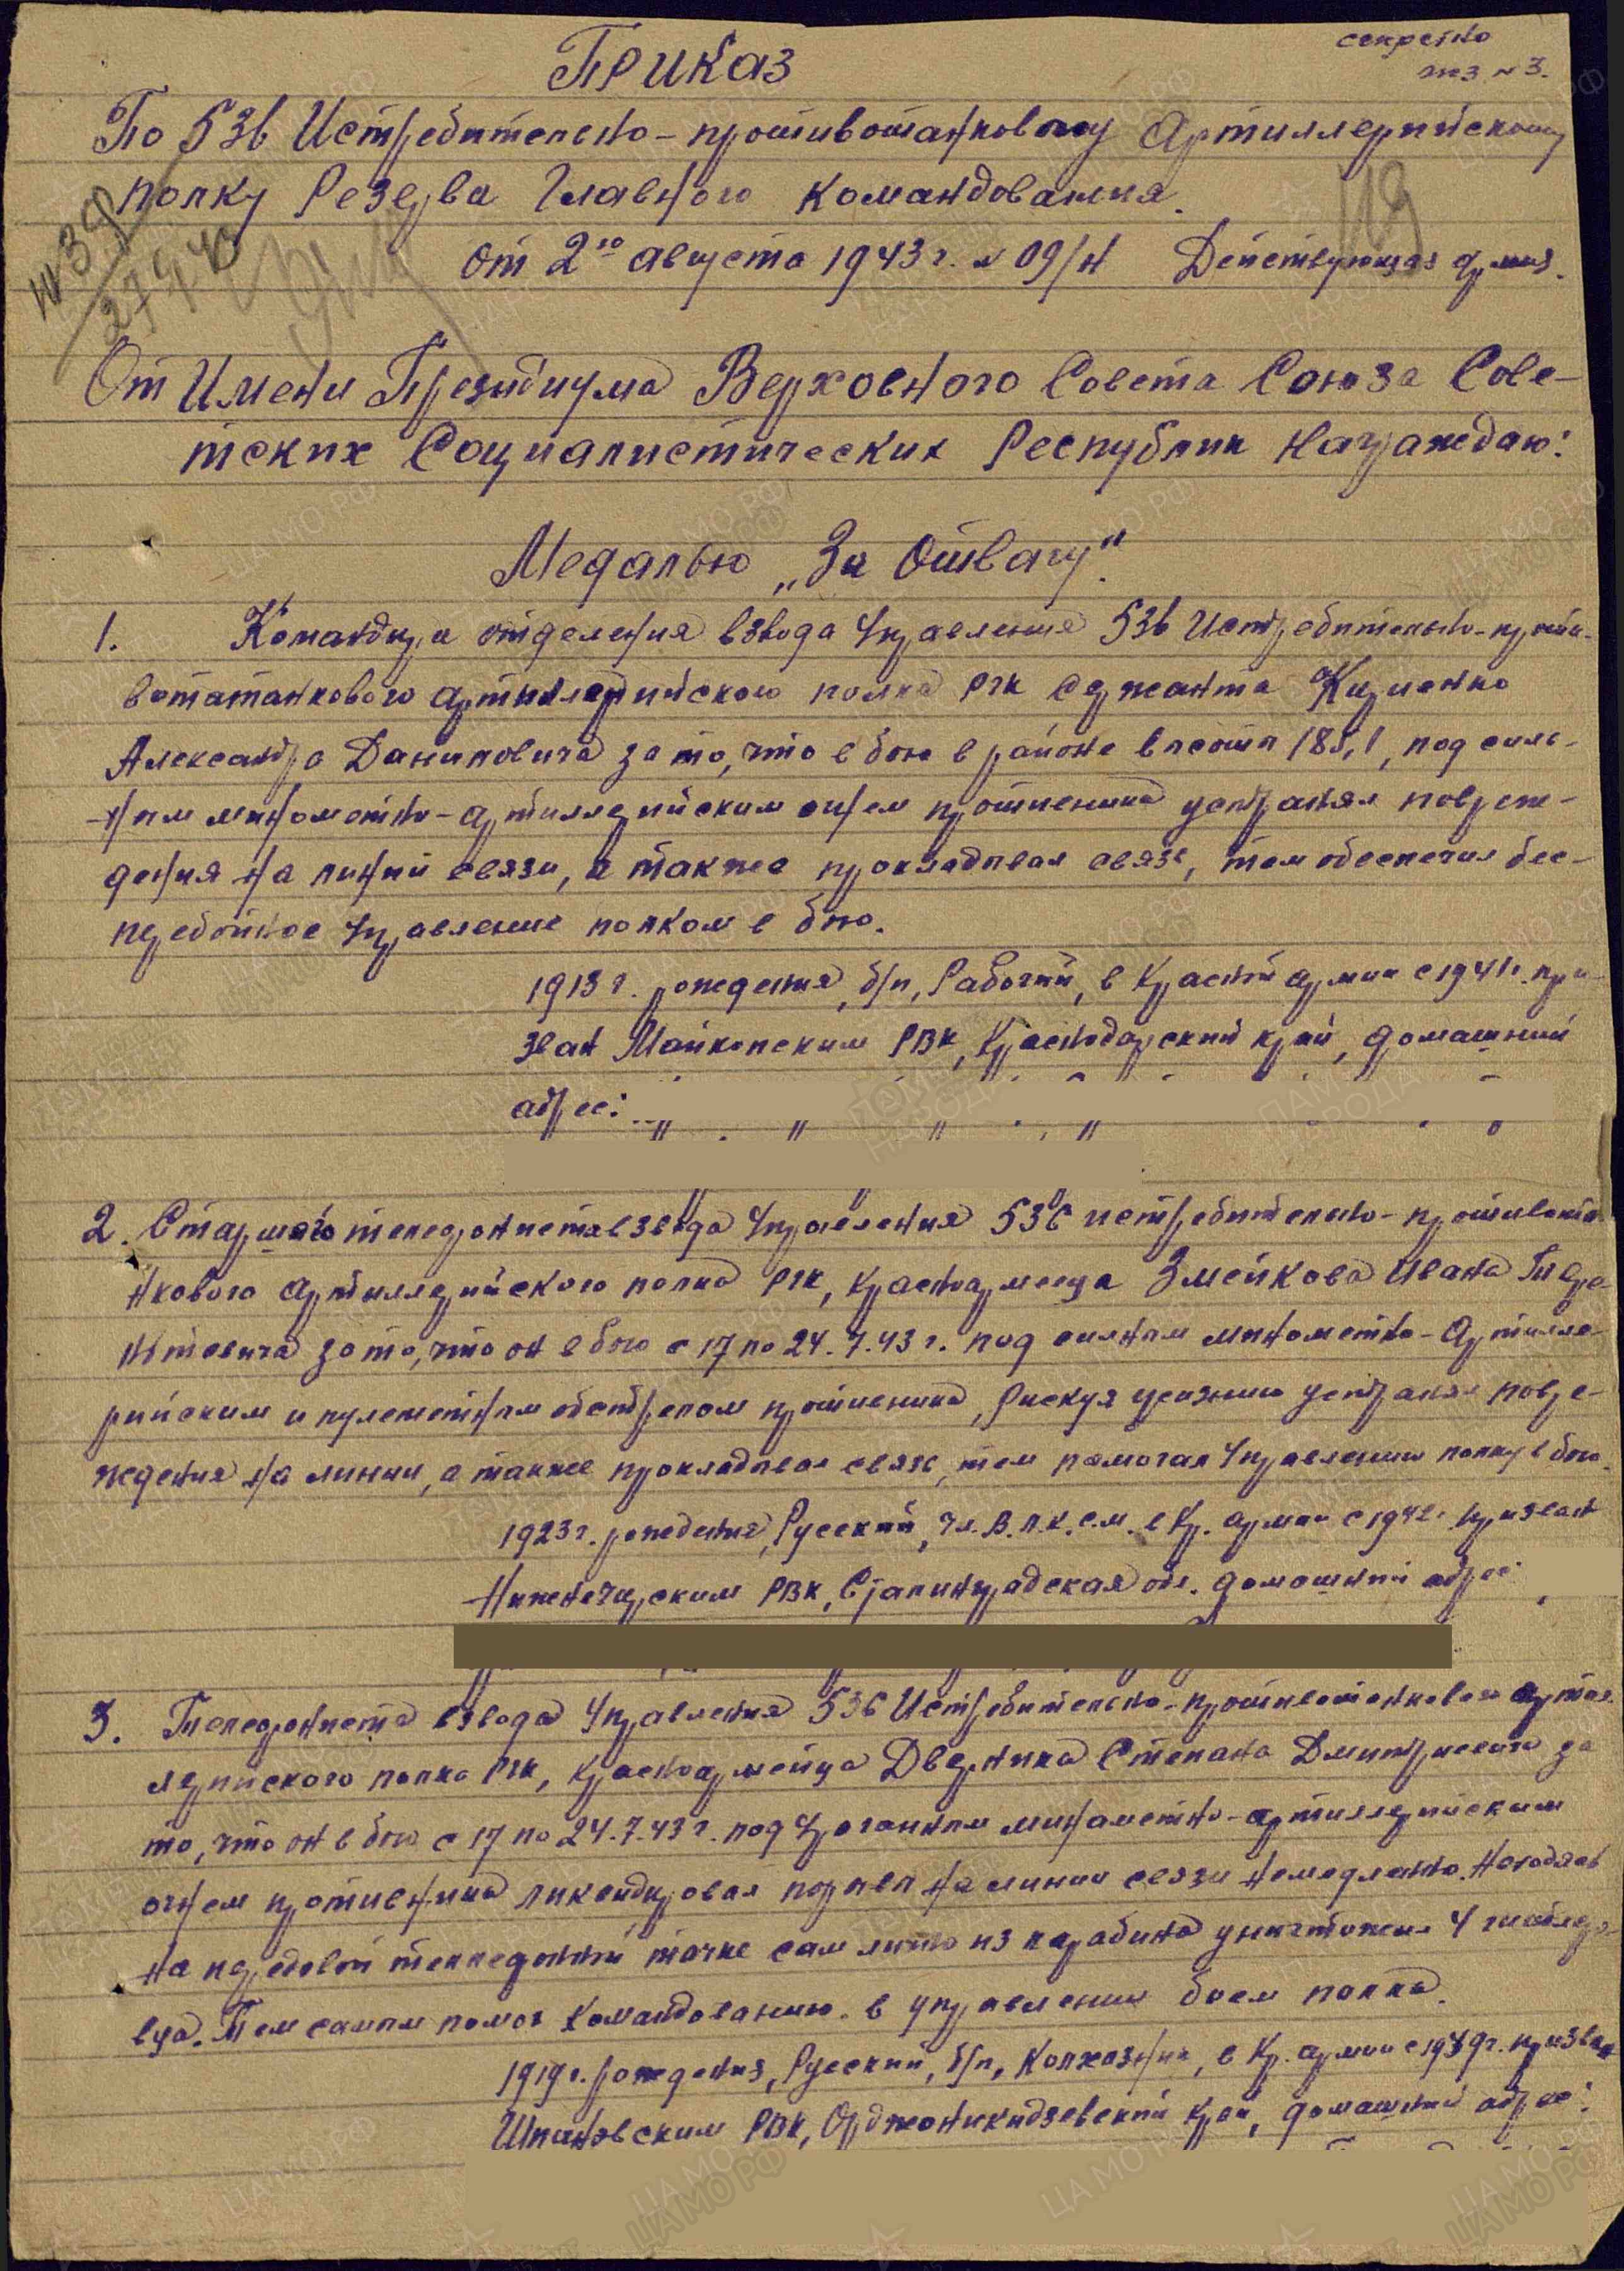 секретно
экз №3.
Приказ
По 536 Истребительно-противотанковому Артиллерийскому
полку Резерва Главного Командования.
от 2го августа 1943 г. № 09/н Действующая армия.
От Имени Президиума Верховного Совета Союза Сове-
тских Социалистических Республик Награждаю:
Медалью „За Отвагу".
1. Командира отделения взвода управления 536 Истребительно-проти-
вотатанкового артиллерийского полка РГК сержанта Кириенко
Александра Даниловича за то, что в бою в районе высоты 185,1, под силь-
ным минометно-артиллерийским огнем противника устранял повреж-
дения на линии связи, а также прокладывал связь, тем обеспечил бес-
перебойное управление полком в бою.
1913 г. рождения, б/п, Рабочий, в Красной армии с 1941 г. при-
зван Майкопским РВК, Краснодарский край, домашний
адрес:
2. Старшего телефониста взвода управления 536 истребительно-противота-
нкового артиллерийского полка РГК, красноармейца Змейкова Ивана
за то, что он в бою с 17 по 24.7.43 г. под сильным минометно-артилле-
рийским и пулеметным обстрелом противника, рискуя жизнью устранял повре-
ждения на линии, а также прокладывал связь, тем помогал управлению полку в бою.
1923 г. рождения, Русский, чл. В.Л.К.С.М. в Кр. армии с 1942 г. призван
Нижнечирским РВК, Сталинградская обл. домашний адрес:
3. Телефониста взвода управления 536 Истребительно-противотанкового артил
лерийского полка РГК, красноармейца Дверника Степана Дмитриевича за
то, что он в бою с 17 по 24.7.43 г. под ураганным минаметно-артиллерийским
огнем противника ликвидировал порывы на линии связи немедленно. Находясь
на передовой телефонной точке сам лично из карабина уничтожил 4 гитлеро-
вца. Тем самым помог командованию в управлении боем полка.
1919 г. рождения, Русский, б/п, Колхозник, в Кр. армии с 1939 г. призван
Шпаковским РВК, Орджоникидзевский край, домашний адрес: